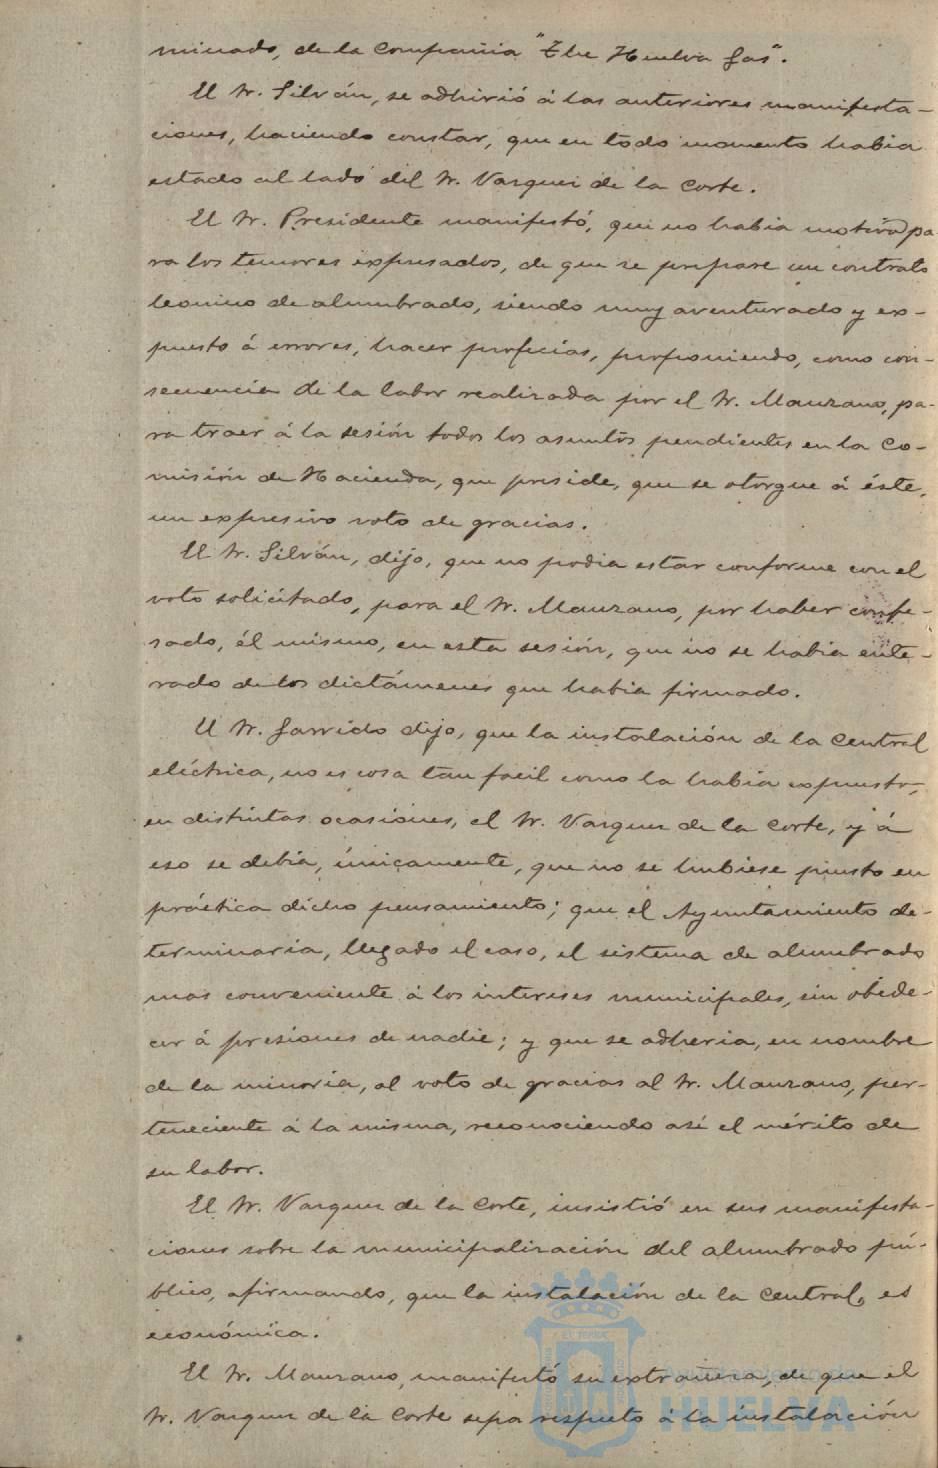 minado, de la Compañia "The Huelva Gas".
El Sr. Silván, se adhirió á las anteriores manifesta-
ciones, haciendo constar, que en todo momento habia
estado al lado del Sr. Vazquez de la Corte.
El Sr. Presidente manifestó, que no habia motivo pa-
ra los temores expresados, de que se prepare un contrato
leonino de alumbrado, siendo muy aventurado y ex-
puesto á errores, hacer profecías, proponiendo, como con-
secuencia de la labor realizada por el Sr. Manzano, pa-
ra traer á la sesión todos los asuntos pendientes en la Co-
misión de Hacienda, que preside, que se otorgue á éste,
un expresivo voto de gracias.
El Sr. Silván, dijo, que no podia estar conforme con el
voto solicitado, para el Sr. Manzano, por haber confe-
sado, él mismo, en esta sesión, que no se habia ente-
rado de los dictámenes que habia firmado.
El Sr. Garrido dijo, que la instalación de la Central
eléctrica, no es cosa tan facil como la habia expuesto,
en distintas ocasiones, el Sr. Vazquez de la Corte, y á
eso se debía, únicamente, que no se hubiese puesto en
práctica dicho pensamiento; que el Ayuntamiento de-
terminaria, llegado el caso, el sistema de alumbrado
mas conveniente á los intereses municipales, sin obede-
cer á presiones de nadie; y que se adheria, en nombre
de la minoría, al voto de gracias al Sr. Manzano, per-
teneciente á la misma, reconociendo asi el mérito de
su labor.
El Sr. Vazquez de la Corte, insistió en sus manifesta-
ciones sobre la municipalización del alumbrado pú-
blico, afirmando, que la instalación de la Central, es
económica.
El Sr. Manzano, manifestó su extrañeza, de que el
Sr. Vazquez de la Corte sepa respecto á la instalación
Ayuntamiento de
HUELVA